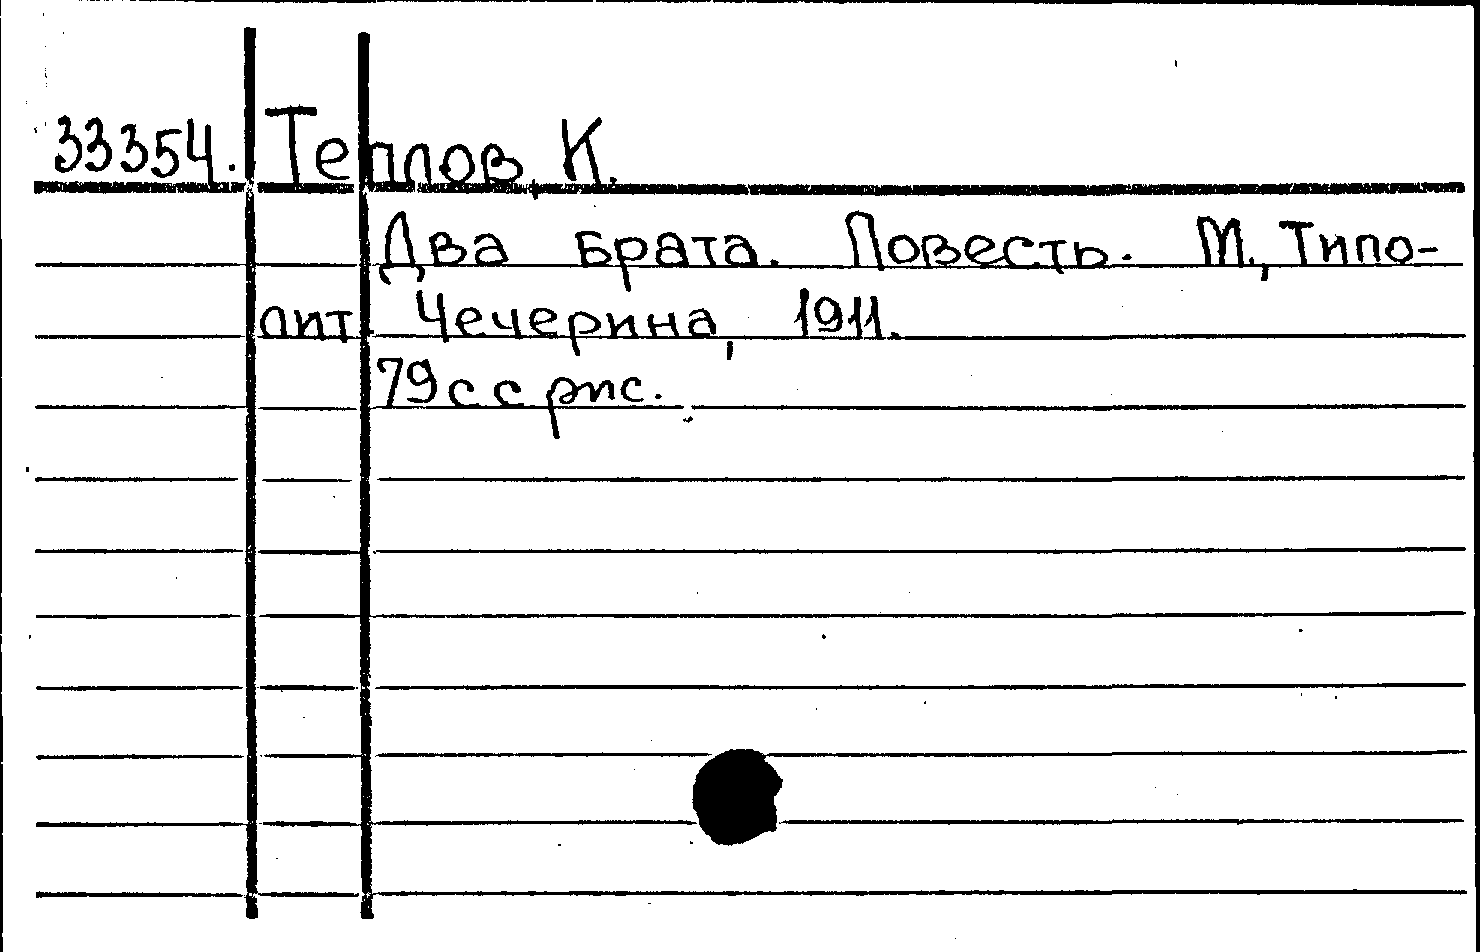 33354. Теплов, К.
Два брата. Повесть. М., Типо-
лит. Чечерина, 1911.
79 с с рис.